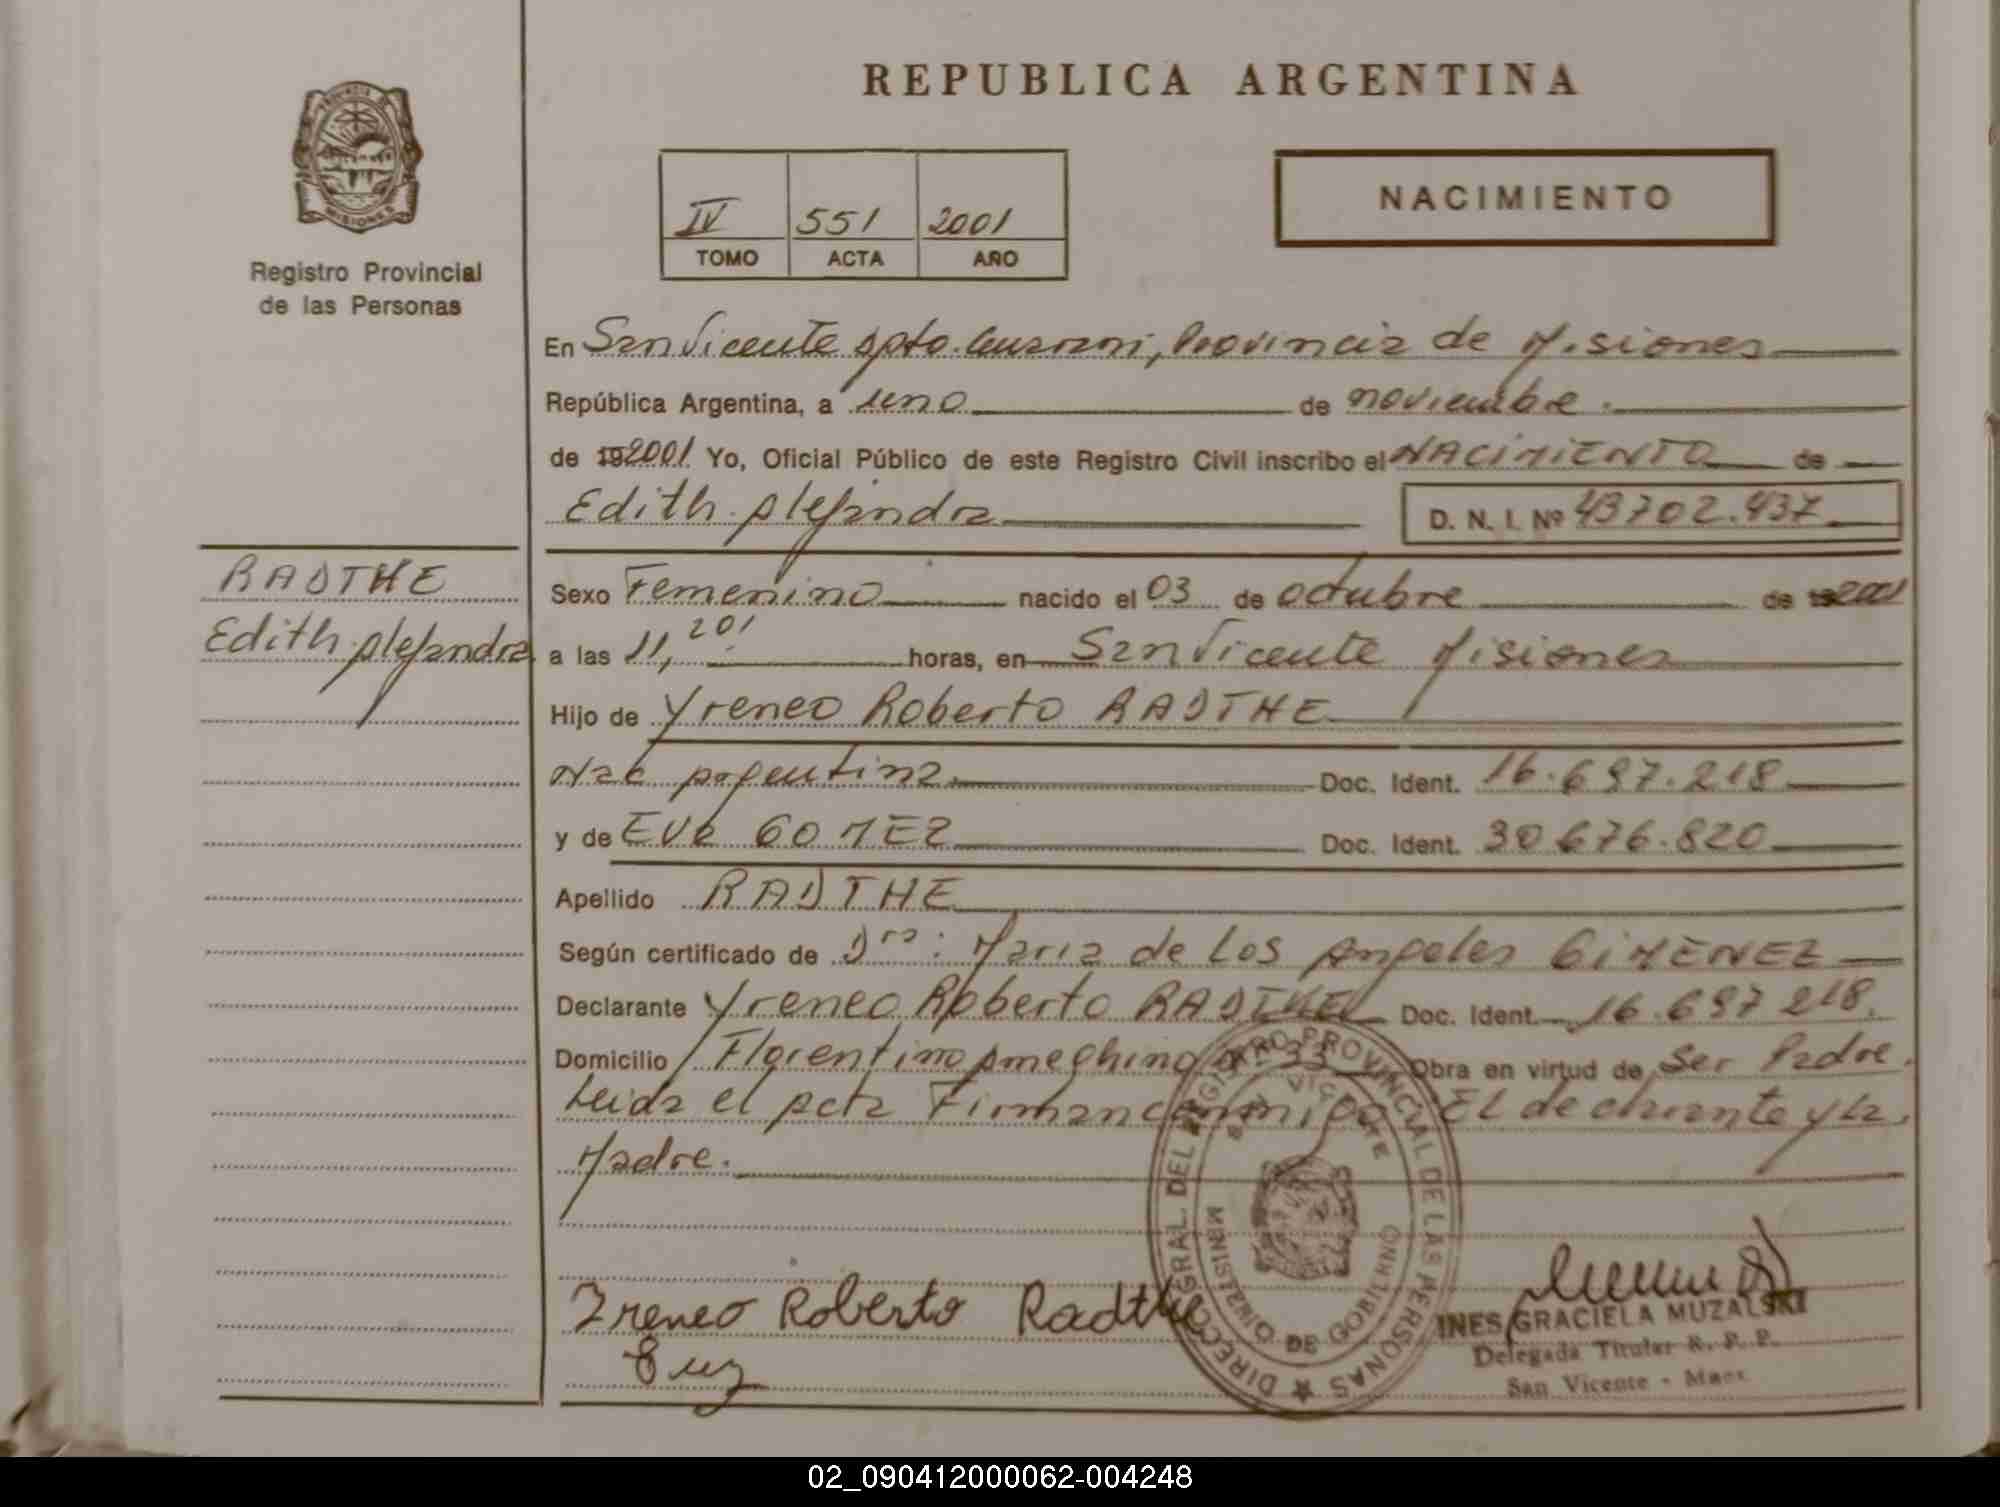 REPUBLICA ARGENTINA
PROVINCIA DE
MISIONES
Registro Provincial
de las Personas
IV 551 2001
TOMO ACTA AÑO
NACIMIENTO
En San Vicente Dpto. Guarani, Provincia de Misiones
República Argentina, a uno de noviembre.
de 192001 Yo, Oficial Público de este Registro Civil inscribo el NACIMIENTO de
Edith Alejandra D. N. I. Nº 43702.437
RADTHE
Edith Alejandra
Sexo Femenino nacido el 03 de octubre de 2001
a las 11,20 horas, en San Vicente Misiones
Hijo de Yreneo Roberto RADTHE
Nac Argentina Doc. Ident. 16.697.218
y de EVA GOMEZ Doc. Ident. 30676.820
Apellido RADTHE
Según certificado de Dra: Maria de Los Angeles GIMENEZ
Declarante Yreneo Roberto RADTHE Doc. Ident. 16.697 218.
Domicilio Florentino Ameghino 33 Obra en virtud de Ser Padre.
Leida el Acta Firman conmigo El declarante y La
Madre.
Yreneo Roberto Radthe
DIRECC. GRAL. DEL REGISTRO PROVINCIAL DE LAS PERSONAS
SAN VICENTE
MINISTERIO DE GOBIERNO
INES GRACIELA MUZALSKI
Delegada Titular R. P. P.
San Vicente - Mnes.
02_090412000062-004248